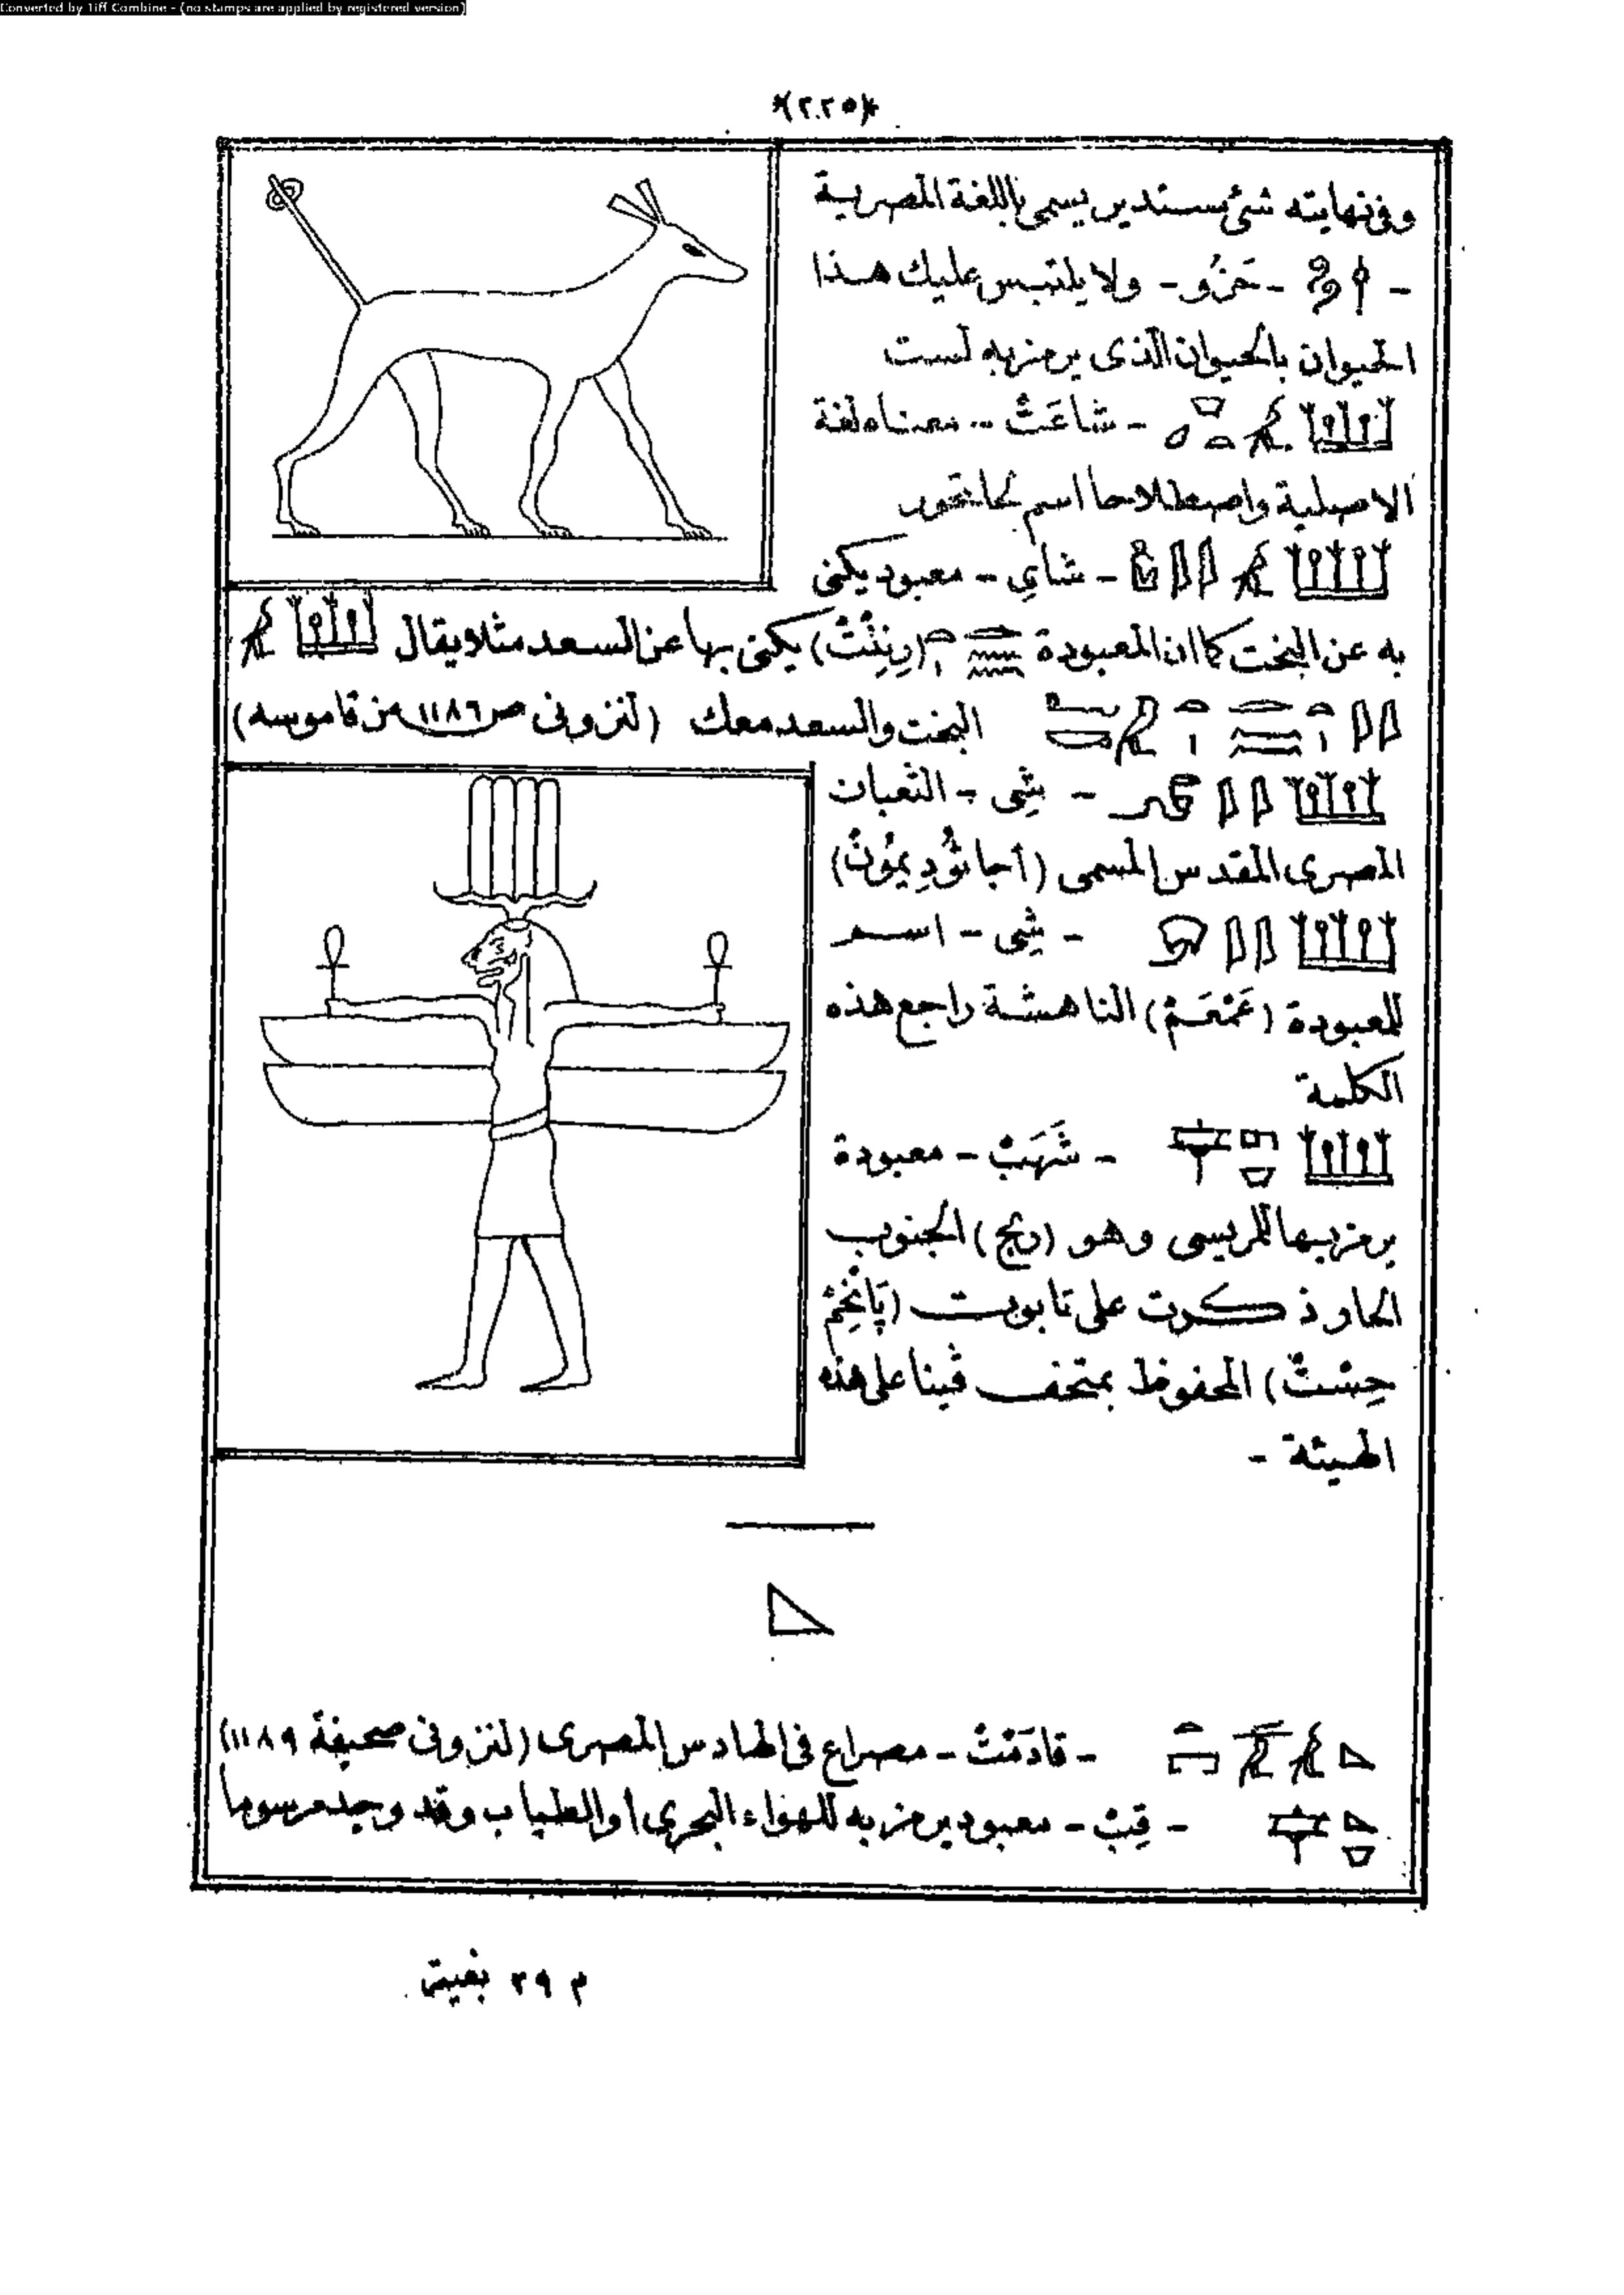 Converted by Tiff Combine - (no stamps are applied by registered version)
*(٢٢٥)*
وفى نهايته شئ مستدير يسمى باللغة المصرية
- حَزُو - ولا يلتبس عليك هذا
الحيوان بالحيوان الذى يرمز به لست
- شاعَتْ - معناه لغة
الاصلية واصطلاحا اسم
- شاىِ - معبود يكنى
به عن البخت كما ان المعبودة (رِنِنْتْ) يكنى بها عن السعد مثلا يقال
البخت والسعد معك (لنزونى ص ١١٨٦ من قاموسه)
- شِى - الثعبان
المصرى المقدس المسمى (أجاثُودِيمُونْ)
- شِى - اسم
للمعبودة (عَمْعَمْ) الناهشة راجع هذه
الكلمة
- شَهَبْ - معبودة
يرمز بها للمريسى وهو (ريح) الجنوب
الحار ذكرت على تابوت (پَانْحِمْ
حِسْتْ) المحفوظ بمتحف ڤينا على هذه
الهيئة -
- قادَمْتْ - مصراع فى الهادس المصرى (لنزونى صحيفة ١١٨٩)
- قِبْ - معبود يرمز به للهواء البحرى أو الطياب وقد وجد مرسوما
م ٢٩ بغية